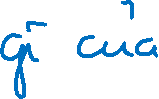 gì của